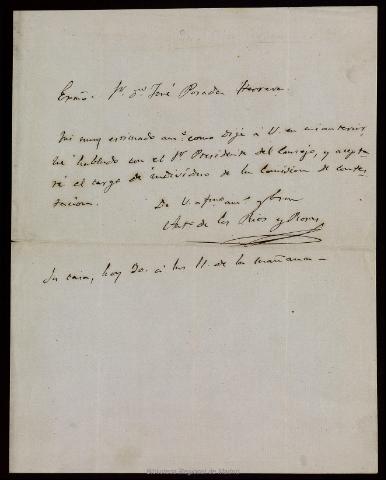 Exmo. Sr. Dn. José Posada Herrera.
Mi muy estimado amo. como dije á V. en mi anterior,
he hablado con el Sr. Presidente del Consejo, y acepta-
ré el cargo de individuo de la Comision de contes-
tacion.
De V. afmo. amo. y
Anto. de los Rios y Rosas
Su casa, hoy 20. á las 11. de la mañana—
Biblioteca Regional de Madrid